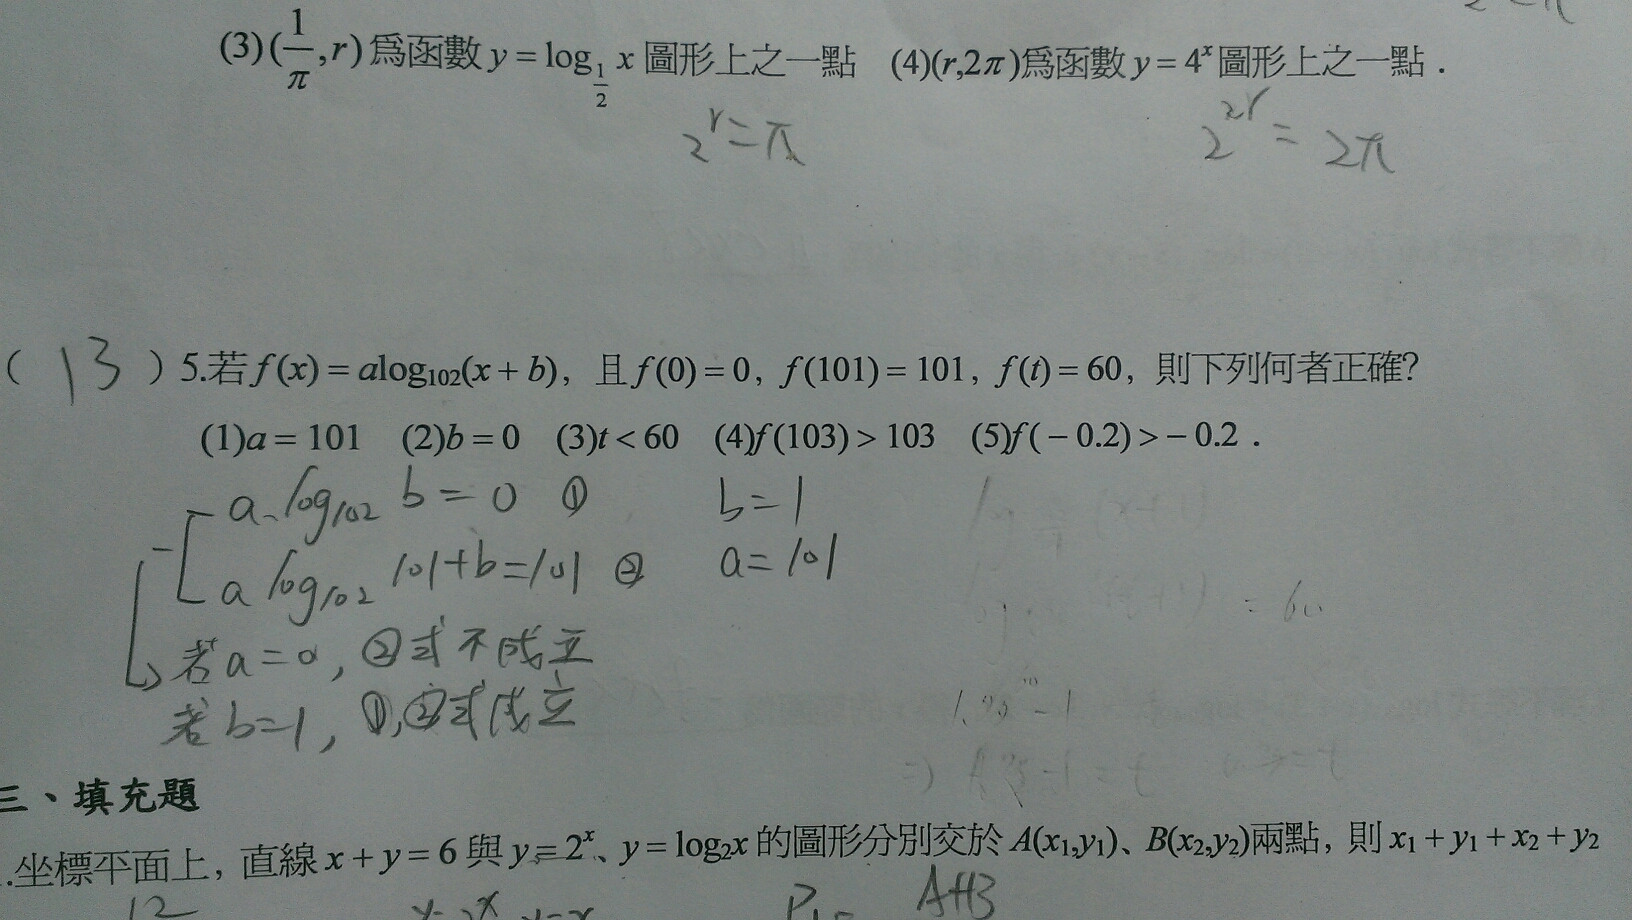 (3)(1/π,r)爲函數 y = log_{1/2} x 圖形上之一點 (4)(r,2π)爲函數 y = 4^x 圖形上之一點．
2^r=π 2^{2r} = 2π
( 13 ) 5.若 f(x) = alog₁₀₂(x + b)，且 f(0) = 0，f(101) = 101，f(t) = 60，則下列何者正確?
(1)a = 101 (2)b = 0 (3)t < 60 (4)f(103) > 103 (5)f(－0.2) > －0.2．
a log₁₀₂ b = 0 ① b=1
a log₁₀₂ 101+b=101 ② a=101
若a=0, ②式不成立
若b=1, ①,②式成立
三、填充題
.坐標平面上，直線 x + y = 6 與 y = 2^x、y = log₂x 的圖形分別交於 A(x₁,y₁)、B(x₂,y₂)兩點，則 x₁ + y₁ + x₂ + y₂
12